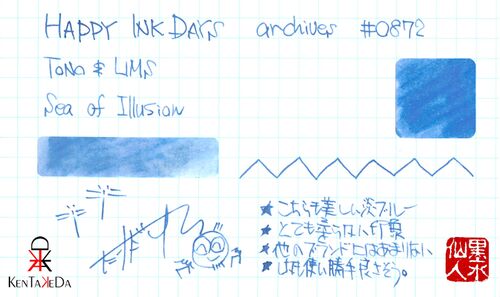 HAPPY INK DAYS archives #0872
TONO & LIMS
Sea of Illusion
★こちらも美しい淡ブルー
★とても柔らかい印象
★他のブランドにはあまりない
★しかも使い勝手良さそう。
KENTAKEDA
墨水
仙人